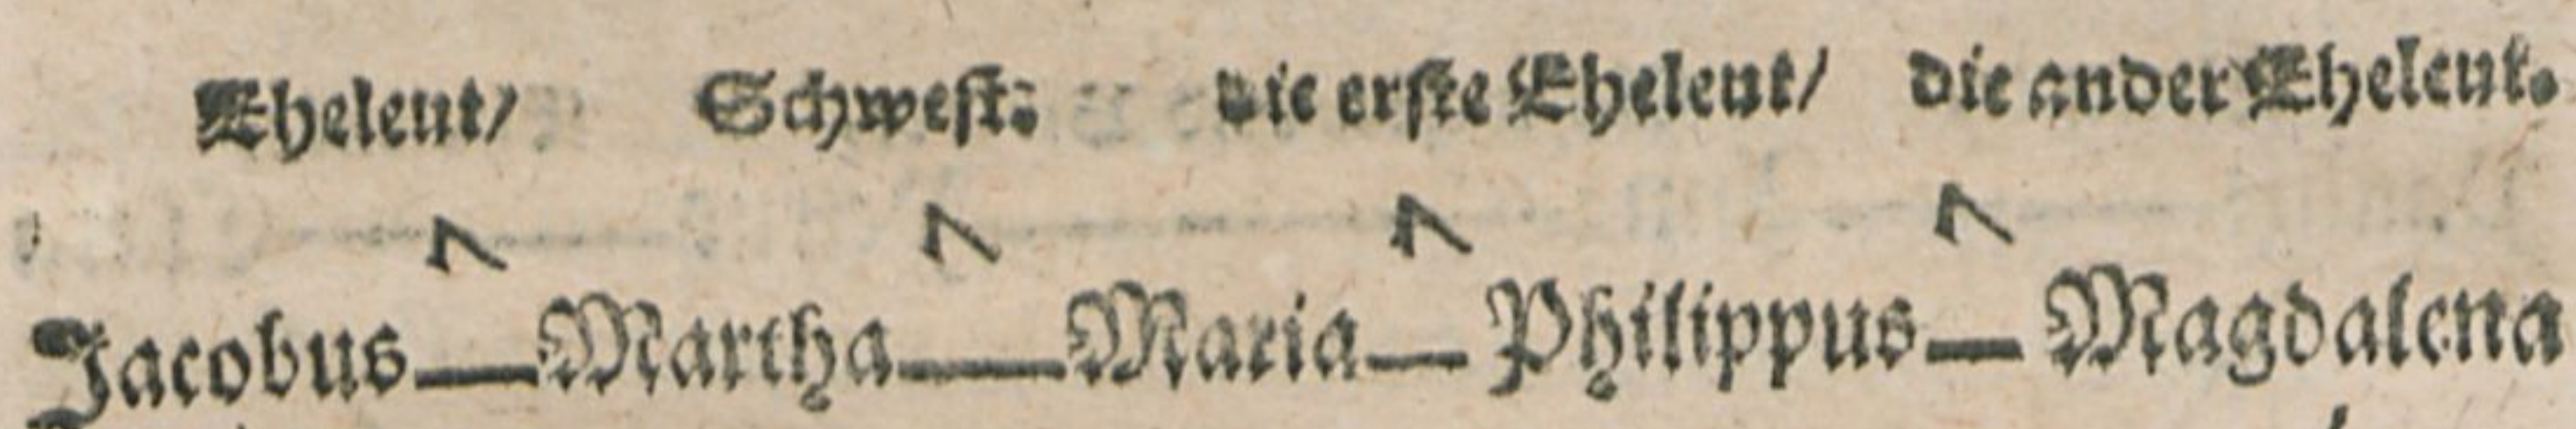 Eheleut/ Schwest: die erste Eheleut/ die ander Eheleut.
Jacobus—Martha—Maria—Philippus—Magdalena